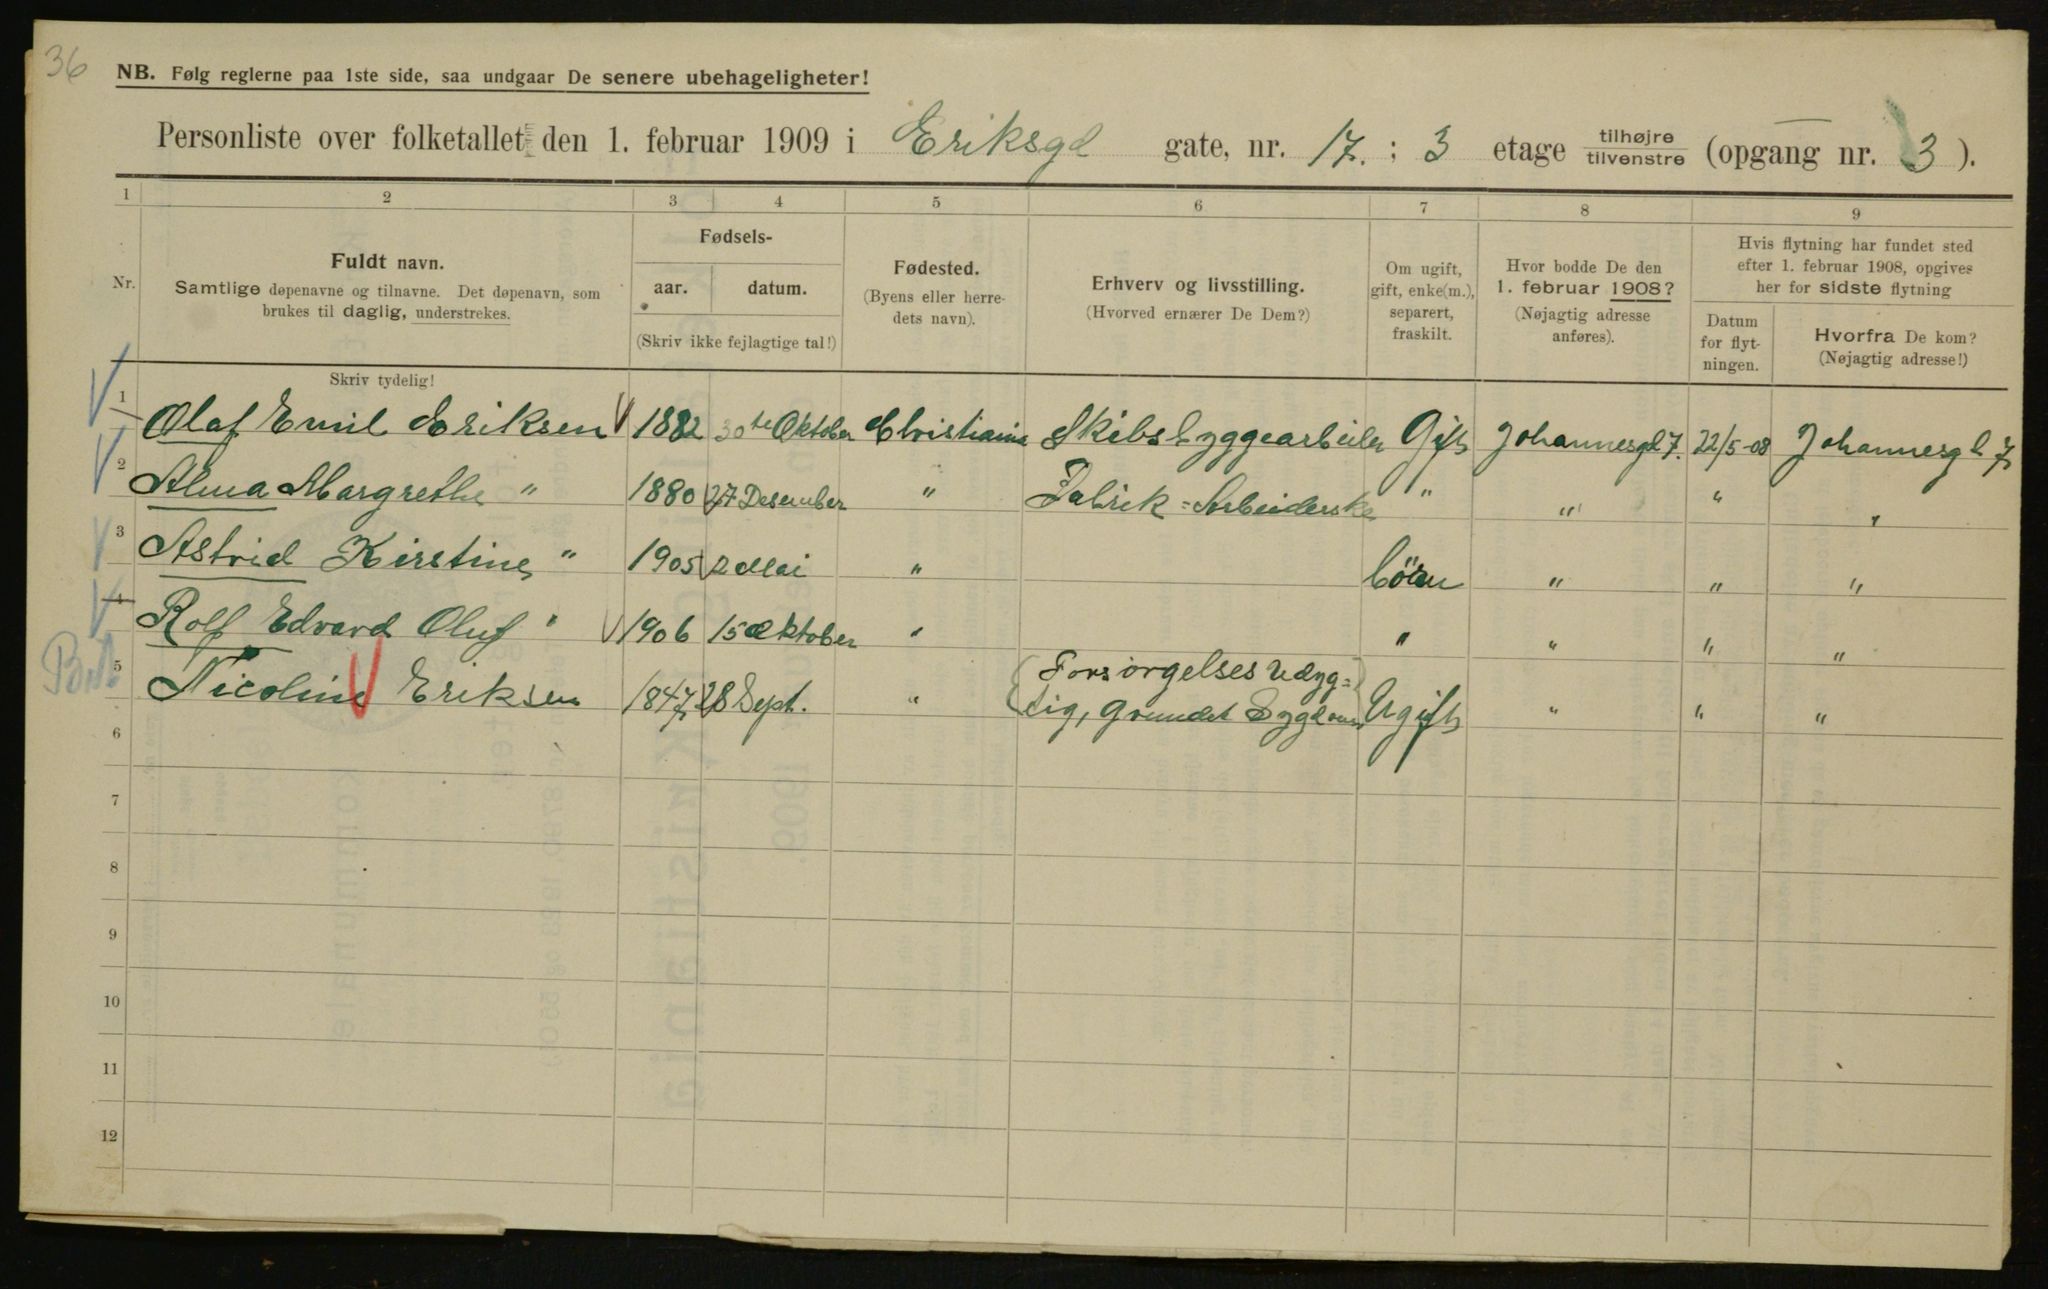 36
NB. Følg reglerne paa 1ste side, saa undgaar De senere ubehageligheter!
Personliste over folketallet den 1. februar 1909 i Eriksgd gate, nr. 17. ; 3 etage tilhøjre tilvenstre (opgang nr. 3 ).
1 2 3 4 5 6 7 8 9
Nr.
Fuldt navn.
Samtlige døpenavne og tilnavne. Det døpenavn, som
brukes til daglig, understrekes.
Fødsels-
aar. datum.
(Skriv ikke fejlagtige tal!)
Fødested.
(Byens eller herre-
dets navn).
Erhverv og livsstilling.
(Hvorved ernærer De Dem?)
Om ugift,
gift, enke(m.),
separert,
fraskilt.
Hvor bodde De den
1. februar 1908?
(Nøjagtig adresse
anføres).
Hvis flytning har fundet sted
efter 1. februar 1908, opgives
her for sidste flytning
Datum
for flyt-
ningen.
Hvorfra De kom?
(Nøjagtig adresse!)
Skriv tydelig!
1 Olaf Emil Eriksen 1882 30te Oktober Christiania Skibsbyggearbeider Gift Johannesgd 7. 22/5-08 Johannesgd 7
2 Alma Margrethe " 1880 27 Desember " Fabrik=Arbeiderske " " " "
3 Astrid Kirstine " 1905 2 Mai " börn " " "
4 Rolf Edvard Oluf " 1906 15 Oktober " " " " "
5 Nicoline Eriksen 1847 28 Sept. " Forsörgelses udyg=
tig, grundet Sygdom Ugift " " "
6
7
8
9
10
11
12